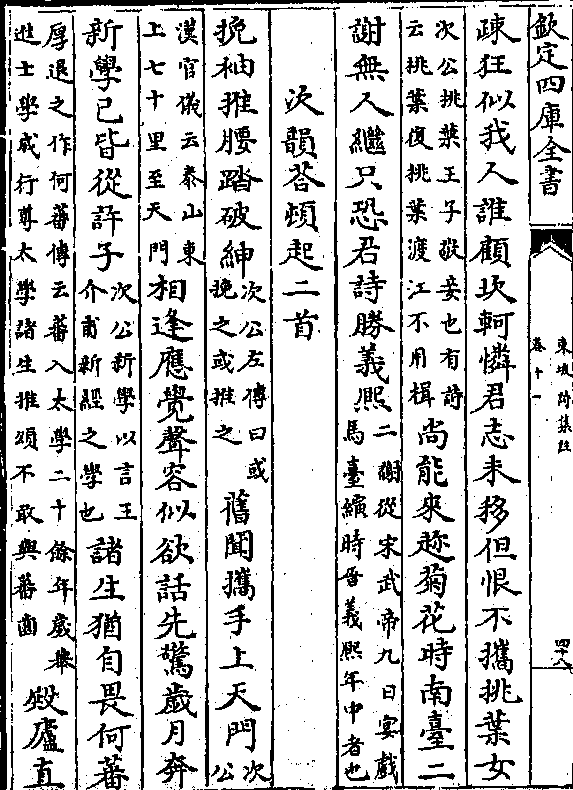 欽定四庫全書
東坡詩集註
卷十一
四十八
疎狂似我人誰顧坎軻憐君志未移但恨不攜挑葉女
次公挑葉王子敬妾也有詩
云挑葉復挑葉渡江不用楫
尚能來趂菊花時南臺二
謝無人繼只恐君詩勝義熙
二謝從宋武帝九日宴戲
馬臺纘時晉義熙年中者也
次韻荅頓起二首
挽袖推腰踏破紳
次公左傳曰或
挽之或推之
舊聞攜手上天門
次
公
漢官儀云泰山東
上七十里至天門
相逢應覺聲容似欲話先驚歲月奔
新學已皆從許子
次公新學以言王
介甫新經之學也
諸生猶自畏何蕃
厚退之作何蕃傳云蕃入太學二十餘年歲舉
進士學成行尊太學諸生推頌不敢與蕃齒
殿廬直